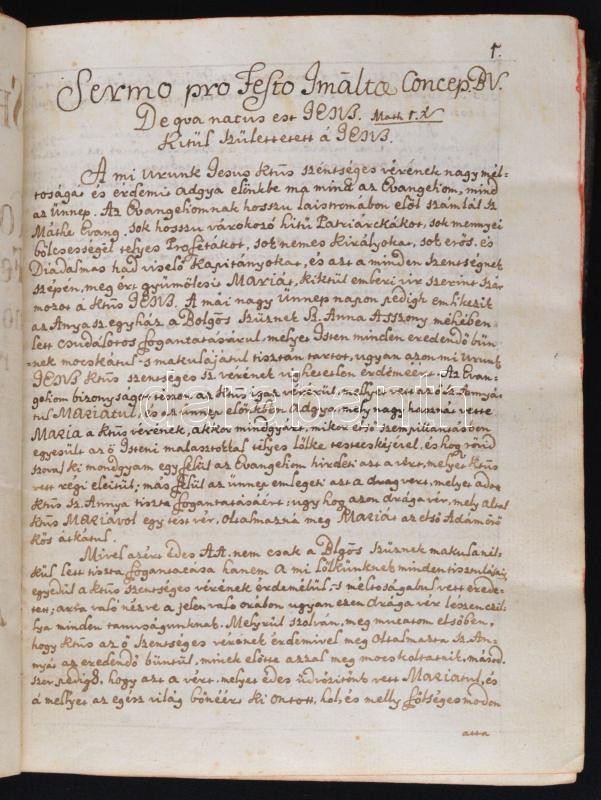 1.
Sermo pro Festo Imăltæ Concep. BV.
De qva natus est JESUS. Math 1. V
Kitűl Születtetett á JESUS.
A mi Urunk Jesus Ktus szentséges vérének nagy mél-
tóságát és érdemit adgya elönkbe ma mind az Evangeliom, mind
az Ünnep. Az Evangeliomnak hosszu laistromában elöl számlál Sz
Máthe Evang. sok hosszu várakozó hitü Patriárckákot, sok mennyei
bölcseséggel tellyes Profétákot, sok nemes Királyokat, sok erös, és
Diadalmas had viselö Kapitányokat, és azt a minden szentségnek
szépen, meg ért gyümölcsit MARIÁT, kiktül emberi vér szerint szár
mozot á Ktus JESUS. A mái nagy Ünnep napon pedigh emlikezik
az Anyaszegyház a Bolgös Szüznek Sz. Anna Asszony méhében
lett csudálotos fogantatásárul, melyet Isten minden eredendö bün-
nek mocskátul s makulájátul tisztán tartot, ugyan azon mi Urunk
JESUS Ktus szentséges sz. vérének véghetetlen érdeméért. Az Evan-
geliom bizonyságot tészen az Ktus igaz vérérül, mellyet vett az ö Sz Annyá-
tul MARIATUL, és az ünnep elönkben adgya, mely nagy hasznát vette
MARIA a Ktus vérének, akkor mindgyárt, mikor elsö szempillantásban
egyesült az ö Isteni malasztottal tellyes lölke testecskéjével, és hogy rövid
szoval ki mondgyam egy felül az Evangeliom hirdeti azt a vért, melyet Ktus
vett régi eleitül; más felül az ünnep emlegeti azt a drága vért, mely adot
Ktus Sz. Annya tiszta fogantatásáért, ugy hogy azon drága vér, mely által
Ktus MARIÁVOL egy test vér, oltalmazná meg MARIÁT az elsö Adám örö
kös átkátul.
Mivel azért édes AA. nem csak a Blgös Szüznek makula nél-
kül lett tiszta fogantatása hanem A mi lölkünknek minden tisztulása is
egyedül a Ktus szentséges vérének érdemébül, s méltoságabul vett erede-
tet; arra való nézve a jelen való orában ugyan ezen drága vér lészen czél-
lya minden tanuságunknak. Melyrül szolván, meg mutatom elsöben,
hogy Ktus az ö szentséges vérének érdemivel meg oltalmazta Sz. An-
nyát az eredendö büntül, minek elötte azzal meg mocskoltatnék, másod-
szor pedigh, hogy azt a vért, melyet édes üdvözitönk vett MARIATUL, és
á mellyet az egész világ bönéért ki ontott, hol, és melly fölséges modon
atta
darabanth